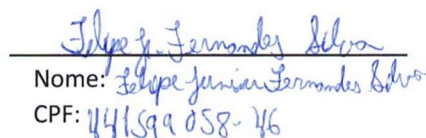 Felipe J. Fernandes Silva
Nome: Felipe Junior Fernandes Silva
CPF: 441599058-46